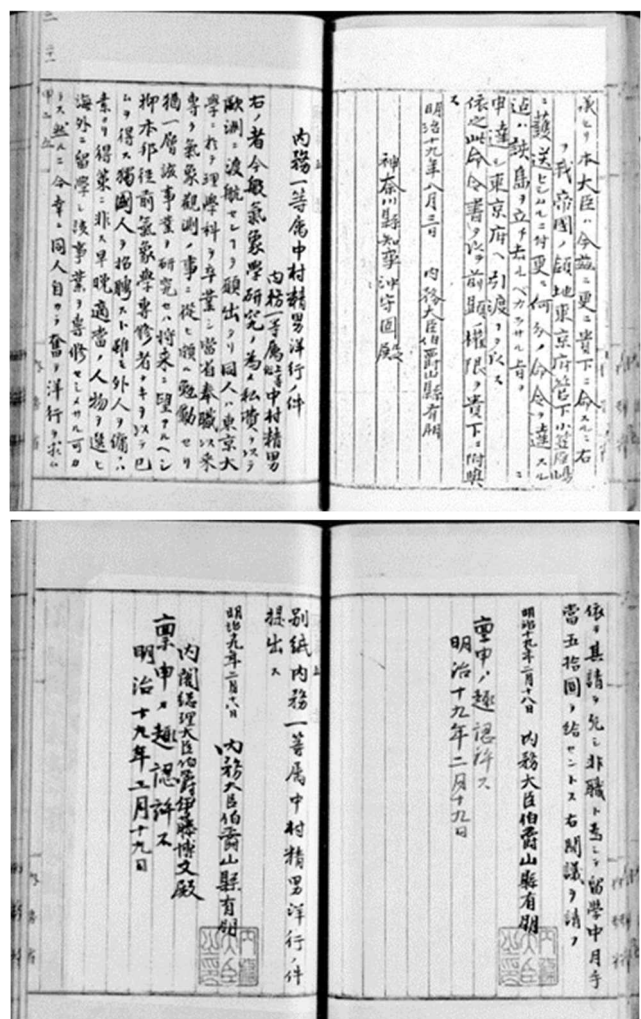 議ヒリ本大臣ハ今玆ニ更ニ貴下ニ命スルニ右
ヲ我帝國ノ領地東京府管下小笠原島
ニ護送セシムルニ付更ニ何分ノ命令ヲ達スル
迄ハ該島ヲ立チ去ルヘカラサル旨ヲ
申達シ東京府ヘ引渡
依之此命令書ヲ以テ前顕ノ權限ヲ貴下ニ附與
ス
明治十九年八月三日 内務大臣伯爵山縣有朋
神奈川縣知事沖守固殿
内務一等属中村精男洋行ノ件
内務一等属中村精男
右ノ者今般氣象学研究ノ為メ私費ヲ以テ
歐洲ニ渡航セシ ヲ願出タリ同人ハ東京大
學ニ於テ理學科ヲ卒業シ當省奉職以来
専ラ氣象觀測ノ事ニ從ヒ頗ル勉勵セリ
猶一層該事業ヲ研究セハ将来ニ望アルヘシ
抑本邦従前氣象学専修者ナキヲ以テ已
ムヲ得ス獨國人ヲ招聘スト雖モ外人ヲ傭フハ
素ヨリ得策ニ非ス早晩適當ノ人物ヲ選ヒ
海外ニ留學シ該事業ヲ専修セシメサル可カ
ラス然ルニ今幸ニ同人自カラ奮テ洋行ヲ求ム
依テ其請ヲ允シ非職ト為シテ留學中月手
當五拾圓ヲ給セントス右閣議ヲ請フ
明治十九年二月十八日 内務大臣伯爵山縣有朋
稟申ノ趣認許ス
明治十九年二月十九日
別紙内務一等属中村精男洋行ノ件
提出ス
明治十九年二月十八日 内務大臣伯爵山縣有朋
内閣総理大臣伯爵伊藤博文殿
稟申ノ趣認許ス
明治十九年二月十九日